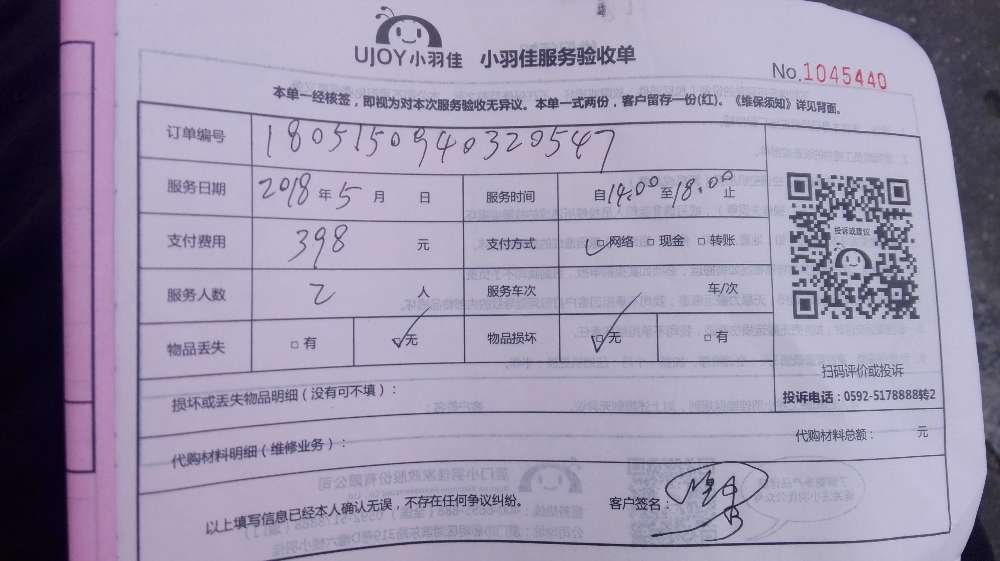 UJOY小羽佳 小羽佳服务验收单
No.1045440
本单一经核签，即视为对本次服务验收无异议。本单一式两份，客户留存一份(红)。《维保须知》详见背面。
订单编号 1805150940320547
服务日期 2018年5月 日 服务时间 自14:00至18:00止
支付费用 398 元 支付方式 □网络 □现金 □转账
服务人数 2 人 服务车次 车/次
物品丢失 □有 □无 物品损坏 □无 □有
投诉或建议
扫码评价或投诉
投诉电话：0592-5178888转2
损坏或丢失物品明细（没有可不填）：
代购材料明细（维修业务）： 代购材料总额： 元
以上填写信息已经本人确认无误，不存在任何争议纠纷。 客户签名：